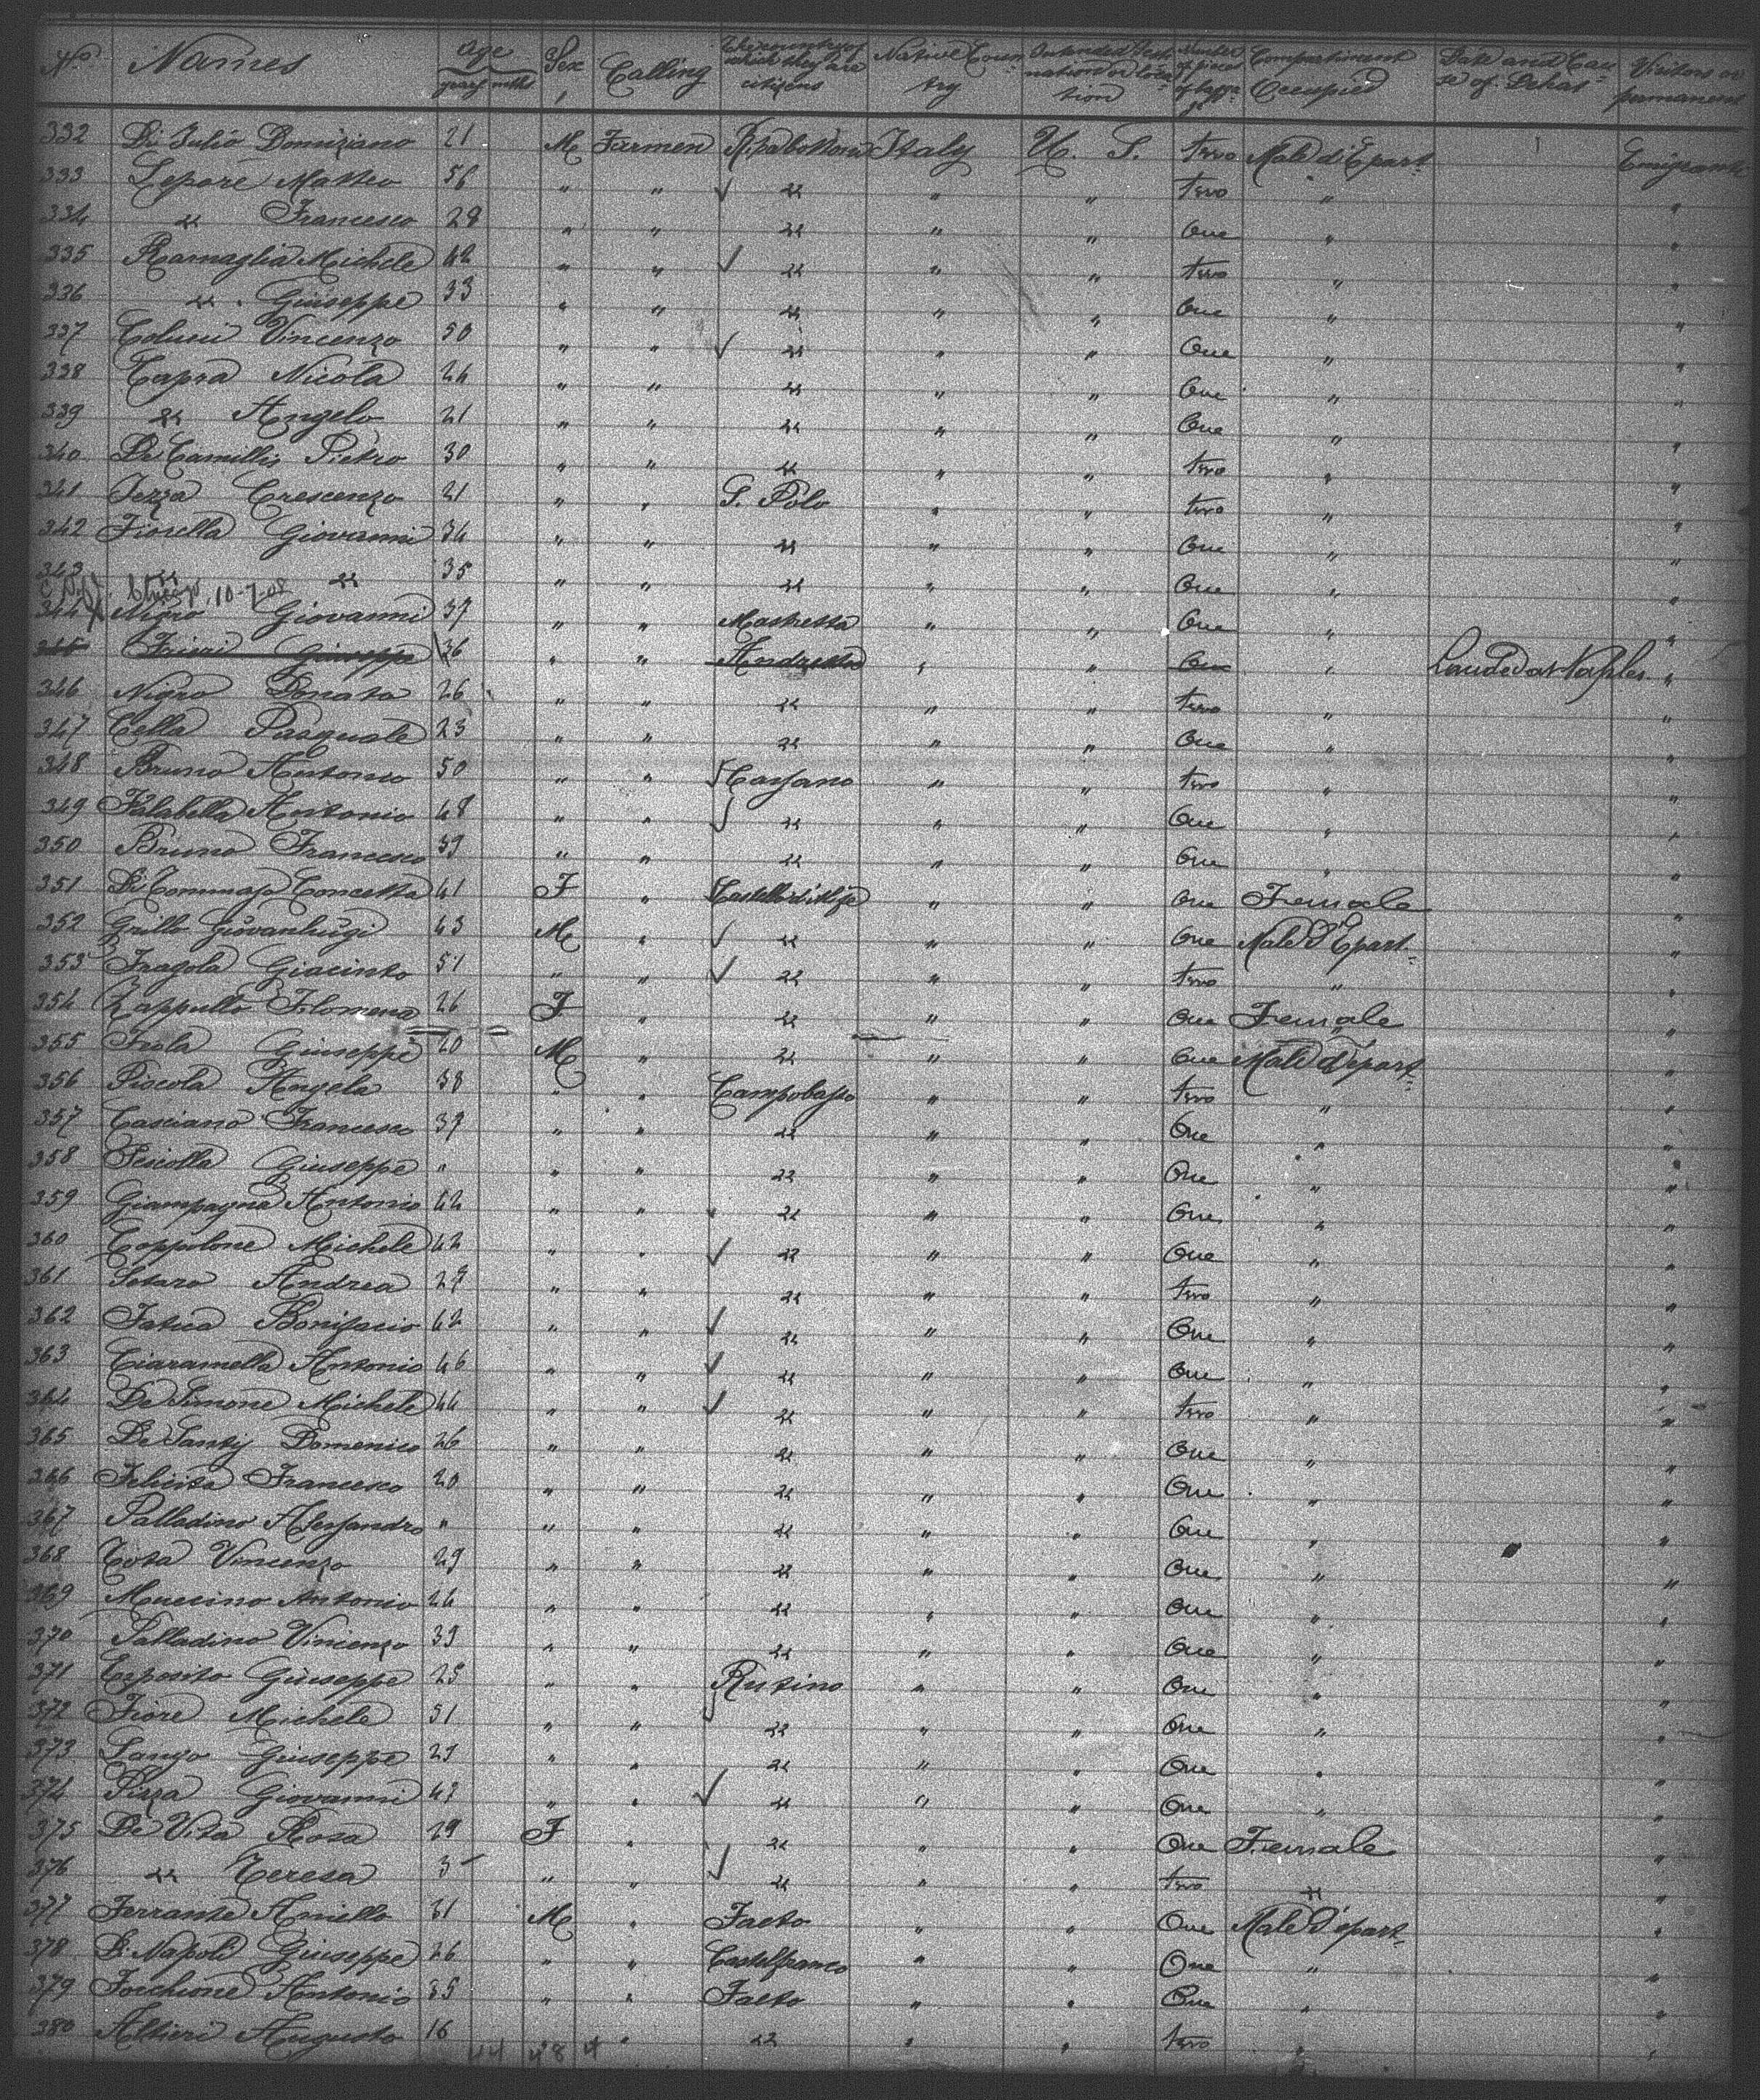 No. Names Age years mths Sex Calling The country of which they are citizens Native Country Intended Destination or Location Number of pieces of luggage Compartiment Occupied Date and Cause of Dehas Visitors or permanent
332 Di Iulio Domiziano 21 M Farmen Ripabottoni Italy U. S. two Male dEpart. Emigrants
333 Lepore Matteo 56 " " ✓ " " " two " "
334 " Francesco 28 " " " " " One " "
335 Ramaglia Michele 42 " " ✓ " " " two " "
336 " Giuseppe 33 " " " " " One " "
337 Colucci Vincenzo 50 " " ✓ " " " One " "
338 Nicola 24 " " " " " One " "
339 " Angelo 21 " " " " " One " "
340 De Camillis Pietro 30 " " " " " two " "
341 Iezza Crescenzo 21 " " S. Polo " " two " "
342 Fiorella Giovanni 34 " " " " " One " "
343 " " 35 " " " " " One " "
Chicago 10-7-08
344 X Nigro Giovanni 37 " " " " One " "
345 Frieri Giuseppe 36 " " Andretta " " One " Landed at Naples "
346 Nigro Donato 26 " " " " " two " "
347 Cella Pasquale 23 " " " " " One " "
348 Bruno Antonio 50 " " ✓ Cassano " " two " "
349 Falabella Antonio 48 " " ✓ " " " One " "
350 Bruno Francesco 39 " " " " " One " "
351 Di Tommaso Concetta 41 F " Castello d'Alife " " One Female "
352 Grillo Giovanluigi 43 M " ✓ " " " One Male dEpart. "
353 Fragola Giacinto 51 " " ✓ " " " two " "
354 Zappullo Filomena 26 F " " " " One Female "
355 Giuseppe 20 M " " " " One Male dEpart. "
356 Piscola Angelo 38 " " Campobasso " " two " "
357 Casciano Francesco 37 " " " " " One " "
358 Giuseppe " " " " " " One " "
359 Giampagna Antonio 42 " " " " " One " "
360 Coppolone Michele 42 " " ✓ " " " One " "
361 Sotaro Andrea 29 " " " " " two " "
362 Fatica Bonifacio 42 " " ✓ " " " One " "
363 Ciaramella Antonio 46 " " ✓ " " " One " "
364 De Simone Michele 44 " " ✓ " " " two " "
365 De Santis Domenico 26 " " " " " One " "
366 Felicita Francesco 20 " " " " " One " "
367 Palladino Alessandro " " " " " " One " "
368 Vincenzo 29 " " " " " One " "
369 Muccino Antonio 24 " " " " " One " "
370 Palladino Vincenzo 39 " " " " " One " "
371 Esposito Giuseppe 25 " " Rutino " " One " "
372 Fiore Michele 51 " " ✓ " " " One " "
373 Giuseppe 25 " " " " " One " "
374 Pizza Giovanni 43 " " ✓ " " " One " "
375 De Vita Rosa 29 F " " " " One Female "
376 " Teresa 3 " " ✓ " " " two " "
377 Ferrante Aniello 31 M " Faeto " " One Male d'epart. "
378 Di Napoli Giuseppe 26 " " Castelfranco " " One " "
379 Forchione Antonio 35 " " Faeto " " One " "
380 Altieri Augusto 16 " " " " two " "
44 48 4